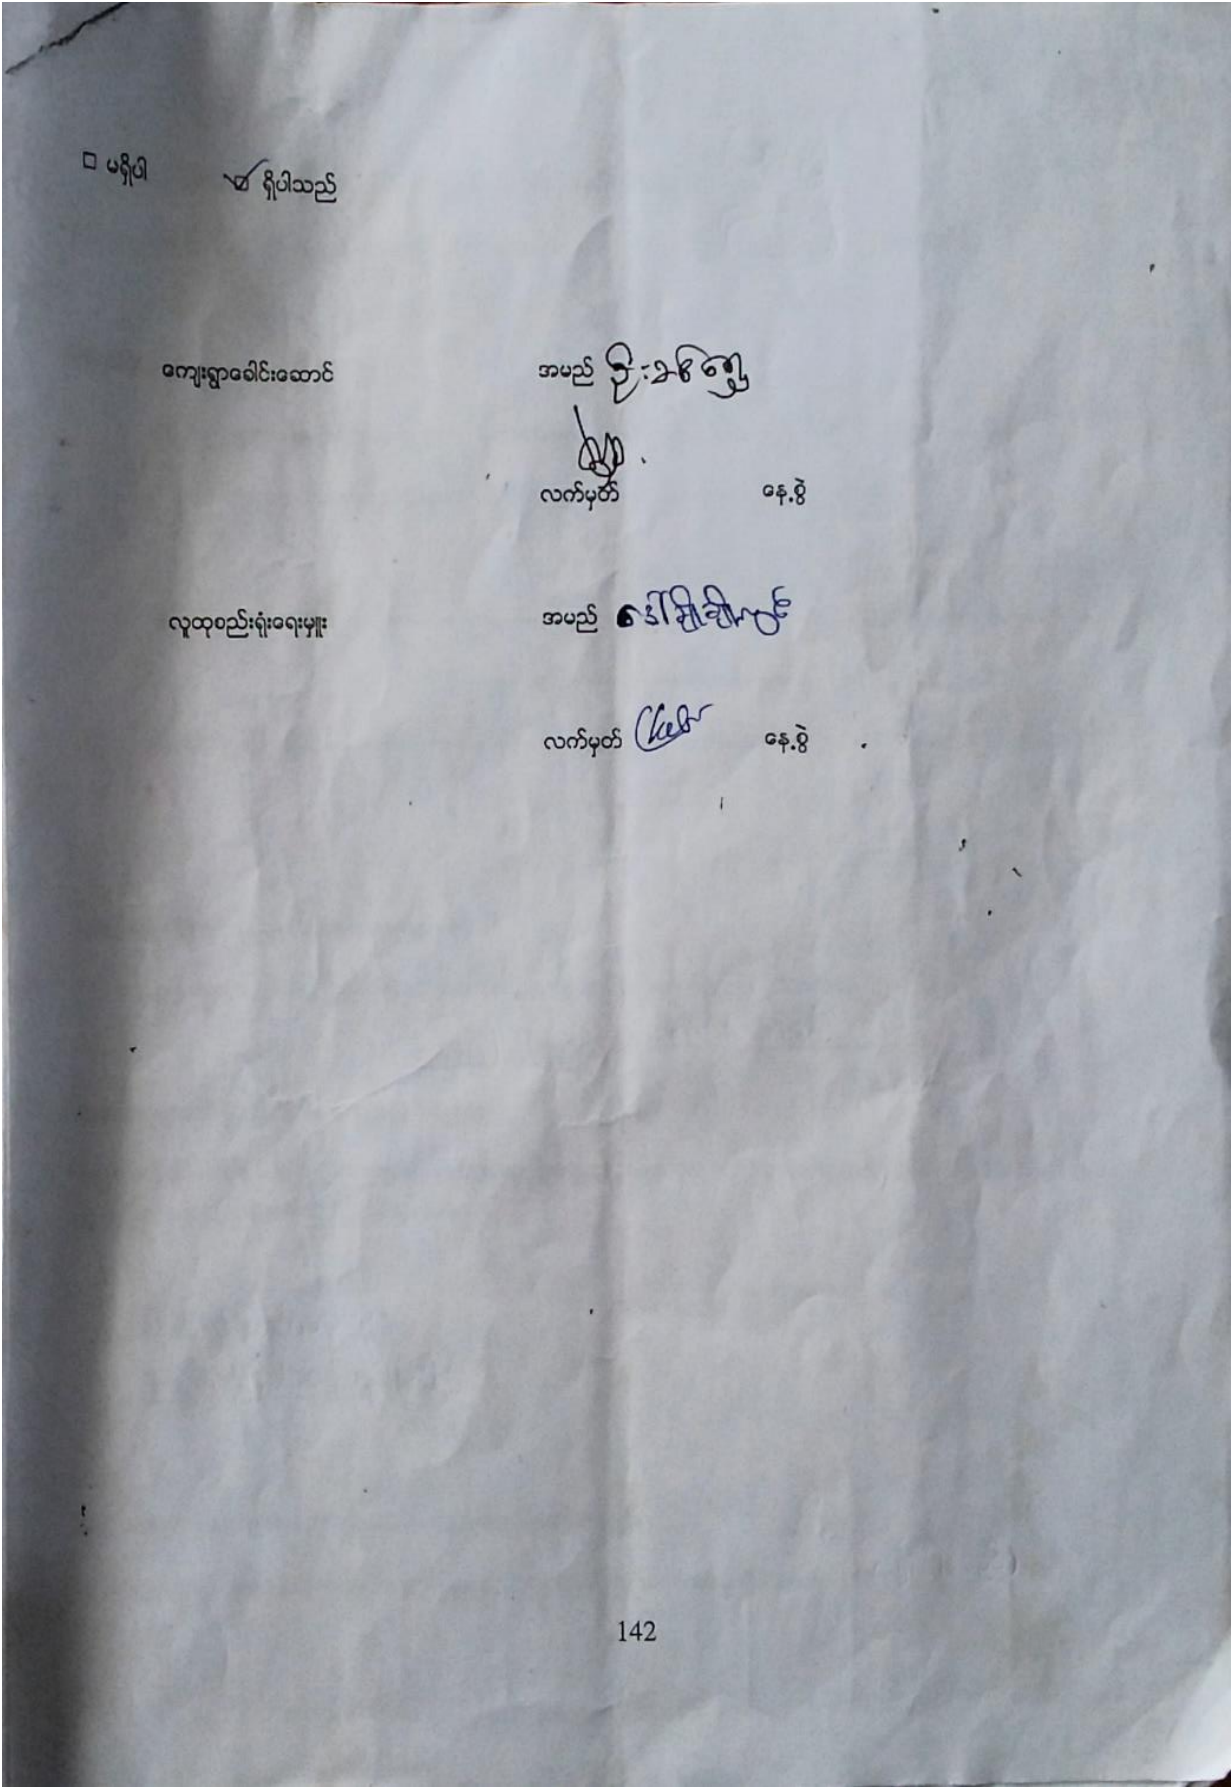 □ မရှိပါ ☑ ရှိပါသည်
ကျေးရွာခေါင်းဆောင် အမည် ဦး
လက်မှတ် နေ့စွဲ
လူထုစည်းရုံးရေးမှူး အမည် ဒေါ်ချိုချိုလွင်
လက်မှတ် နေ့စွဲ
142